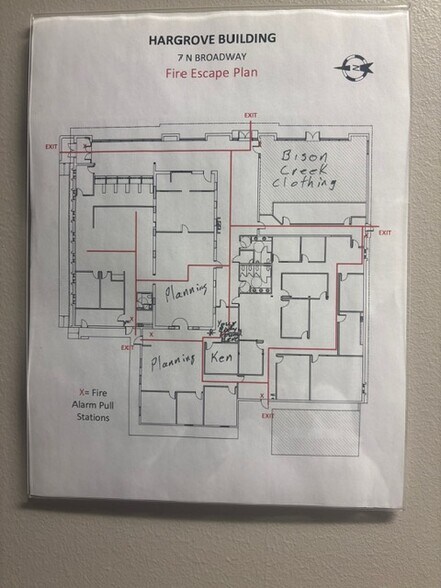 HARGROVE BUILDING
7 N BROADWAY
Fire Escape Plan
N
EXIT
EXIT
Bison
Creek
Clothing
EXIT
Planning
You
Are
Here
X
X
EXIT
Planning
Ken
X= Fire
Alarm Pull
Stations
X
EXIT